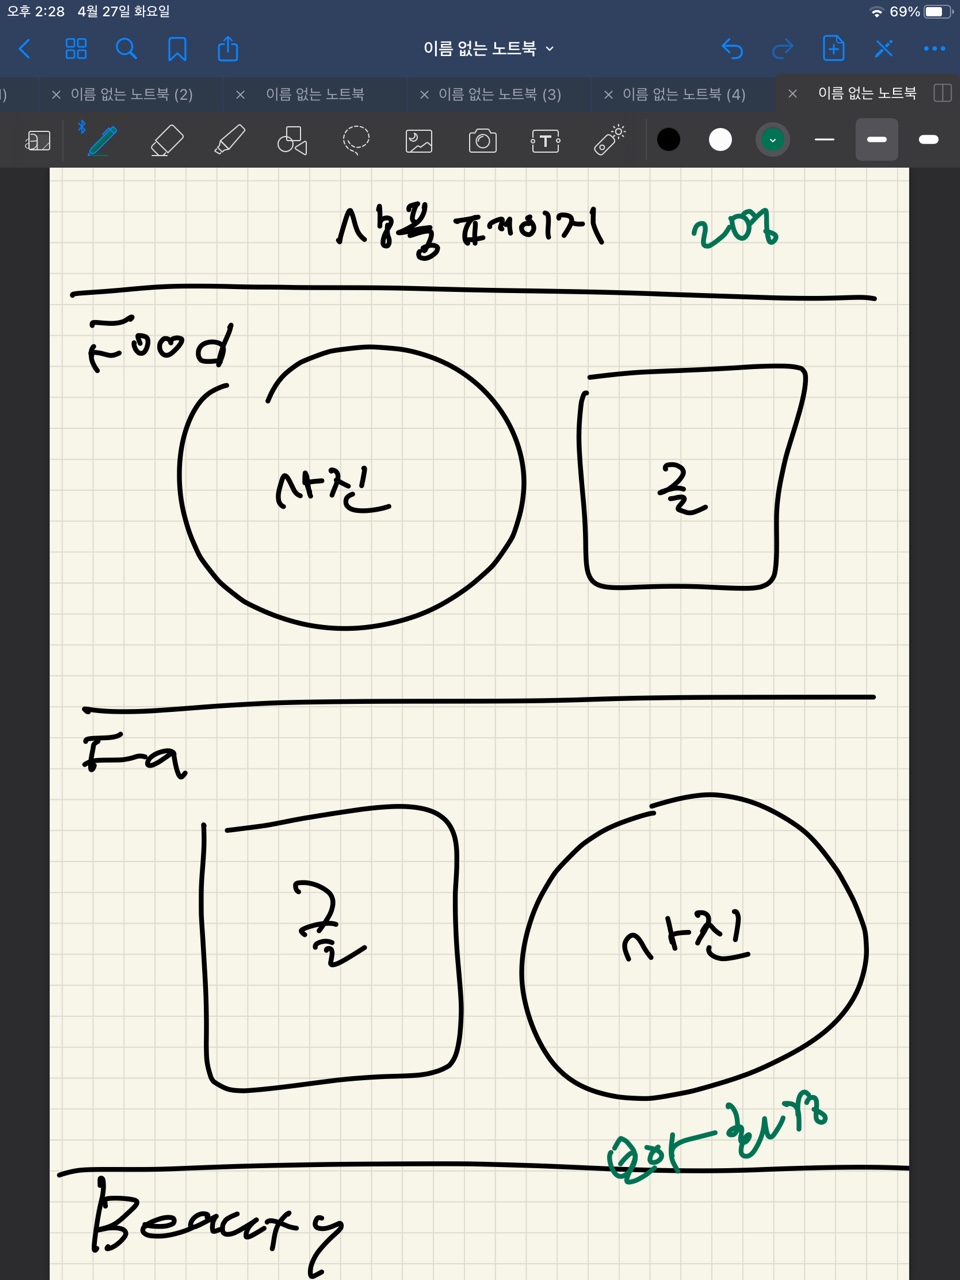 오후 2:28 4월 27일 화요일 69%
이름 없는 노트북
이름 없는 노트북 (2) 이름 없는 노트북 이름 없는 노트북 (3) 이름 없는 노트북 (4) 이름 없는 노트북
T
상품 페이지
Food
사진 글
Fa
글 사진
Beauty